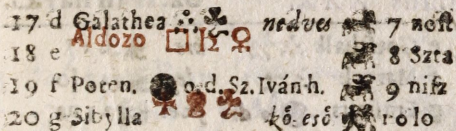 17 d Galathea nedves 7 nost
Aldozo
18 e 8 Szta
19 f Poten. o d. Sz. Iván h. 9 nisz
20 g Sibylla kö. esö 10 lo